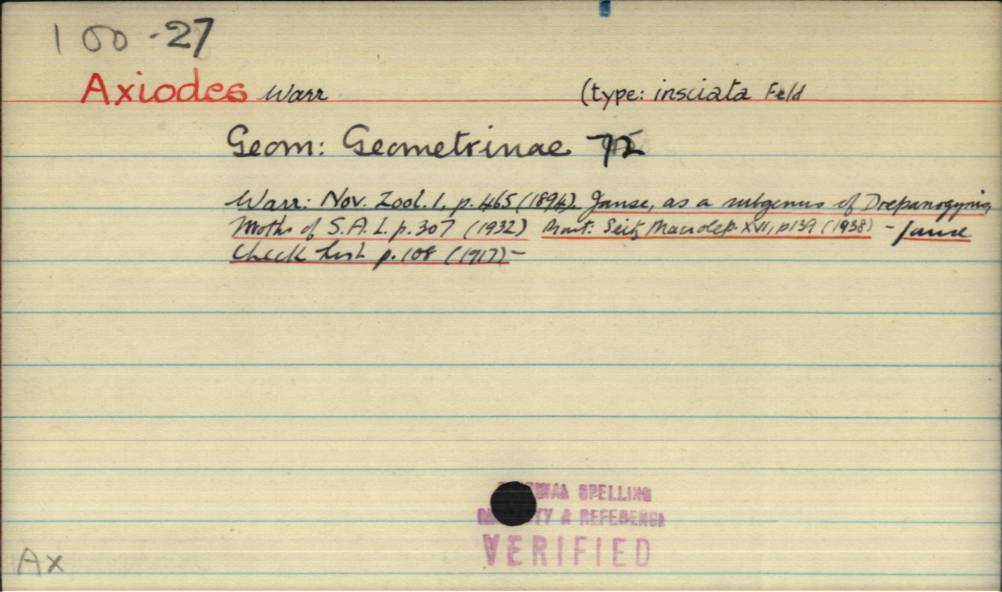 100-27
Axiodes Warr (type: insciata Feld
Geom: Geometrinae 72
Warr: Nov. Zool. 1. p. 465 (1894) Janse, as a subgenus of Drepanogynis,
Moths of S.A. 1. p. 307 (1932) Prout: Seitz Macrolep. XVI, p139 (1938) - Janse
Check List p. 108 (1917) -
SPELLING
& REFERENCE
VERIFIED
Ax